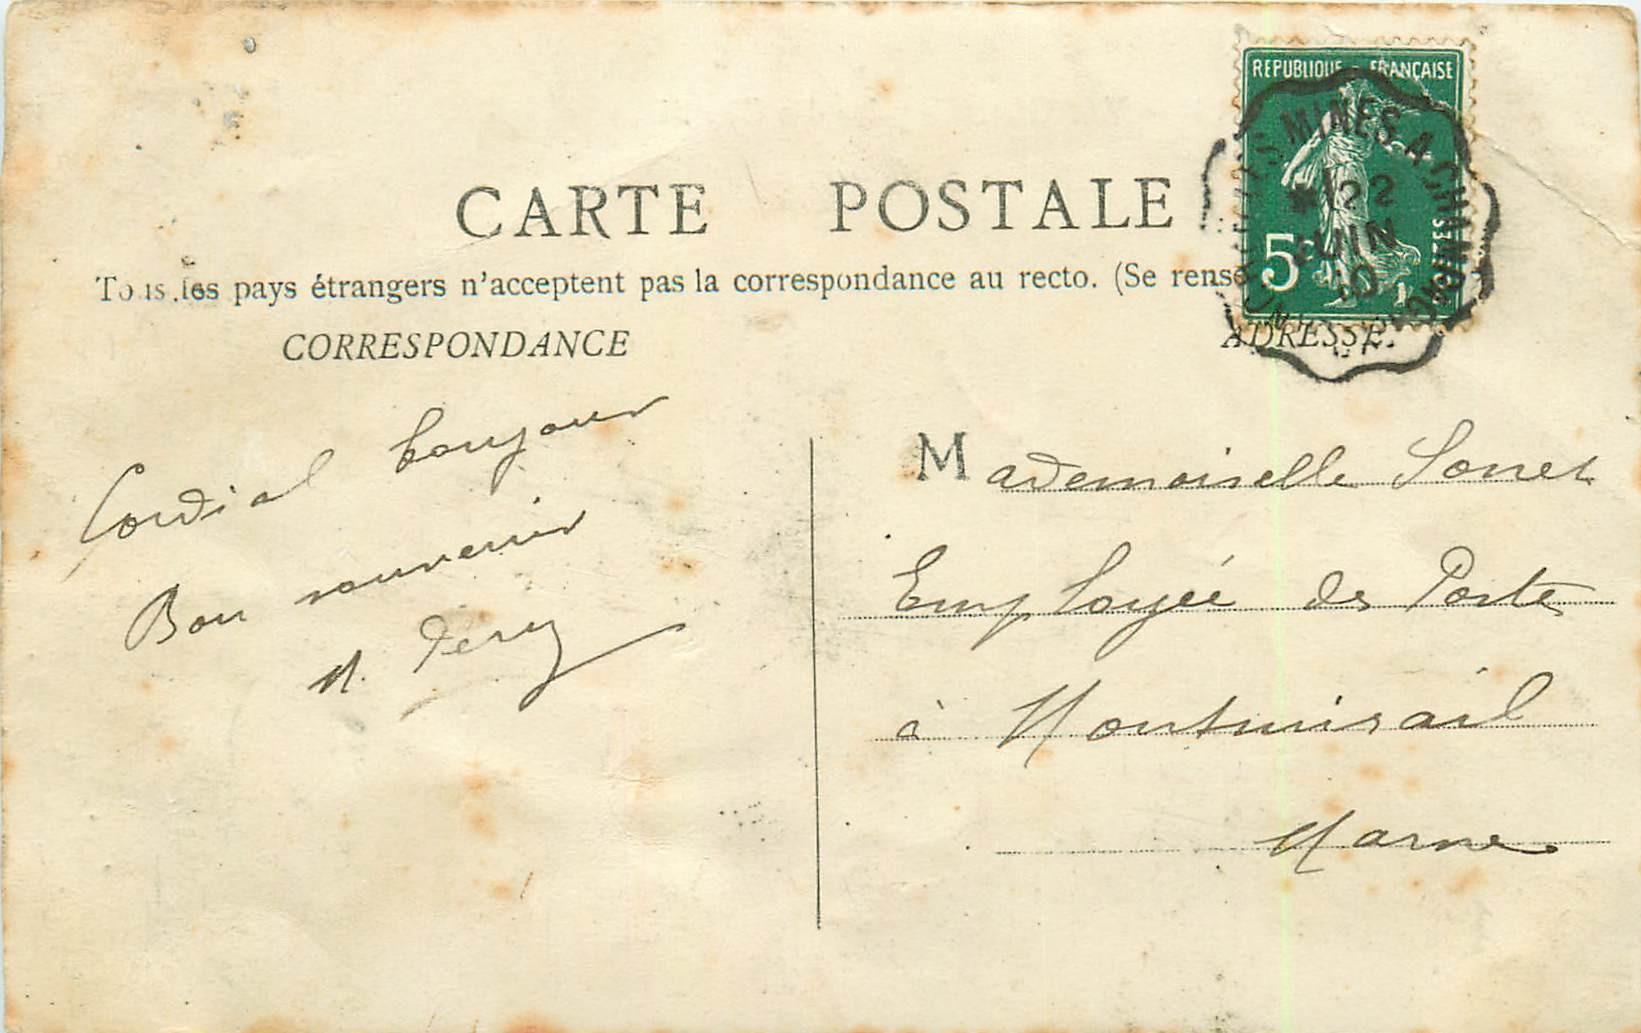 REPUBLIQUE FRANÇAISE
MINES A
22
JUIN
10
5c
POSTES
CARTE POSTALE
Tous les pays étrangers n'acceptent pas la correspondance au recto. (Se rense
CORRESPONDANCE
ADRESSE
Cordial bonjour
Bon souvenir
M.
Mademoiselle
Employée des Postes
à Montmirail
Marne